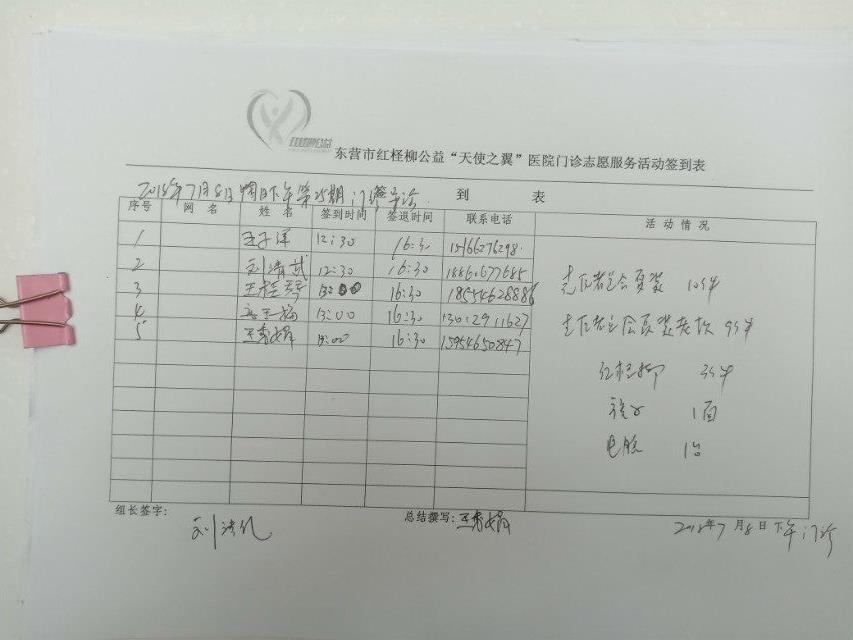 东营市红柽柳公益“天使之翼”医院门诊志愿服务活动签到表
2018年7月8日 下午第25期门诊导诊 到 表
序号 网 名 姓 名 签到时间 签退时间 联系电话 活 动 情 况
1 12:30 16:30 15166276298
2 刘清武 12:30 16:30 18861677685
3 王桂 13:00 16:30 18554628886
4 13:00 16:30 13012911627
5 王秀娟 13:00 16:30 15954650847
志愿者 夏装 10件
志愿者 夏装 9件
红柽柳 3件
旗子 1面
电脑 1台
组长签字: 刘清 总结撰写: 王秀娟 2018年7月8日下午门诊